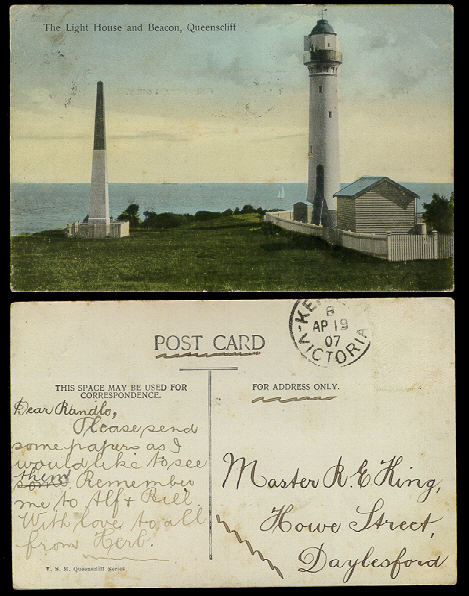 The Light House and Beacon, Queenscliff
POST CARD
THIS SPACE MAY BE USED FOR
CORRESPONDENCE.
FOR ADDRESS ONLY.
8
AP 19
07
VICTORIA
Dear Randlo,
Please send
some papers as I
would like to see
them
some. Remember
me to Alf & Bill.
With love to all
from Herb.
V. S. M. Queenscliff Series
Master R. E. King,
Howe Street,
Daylesford